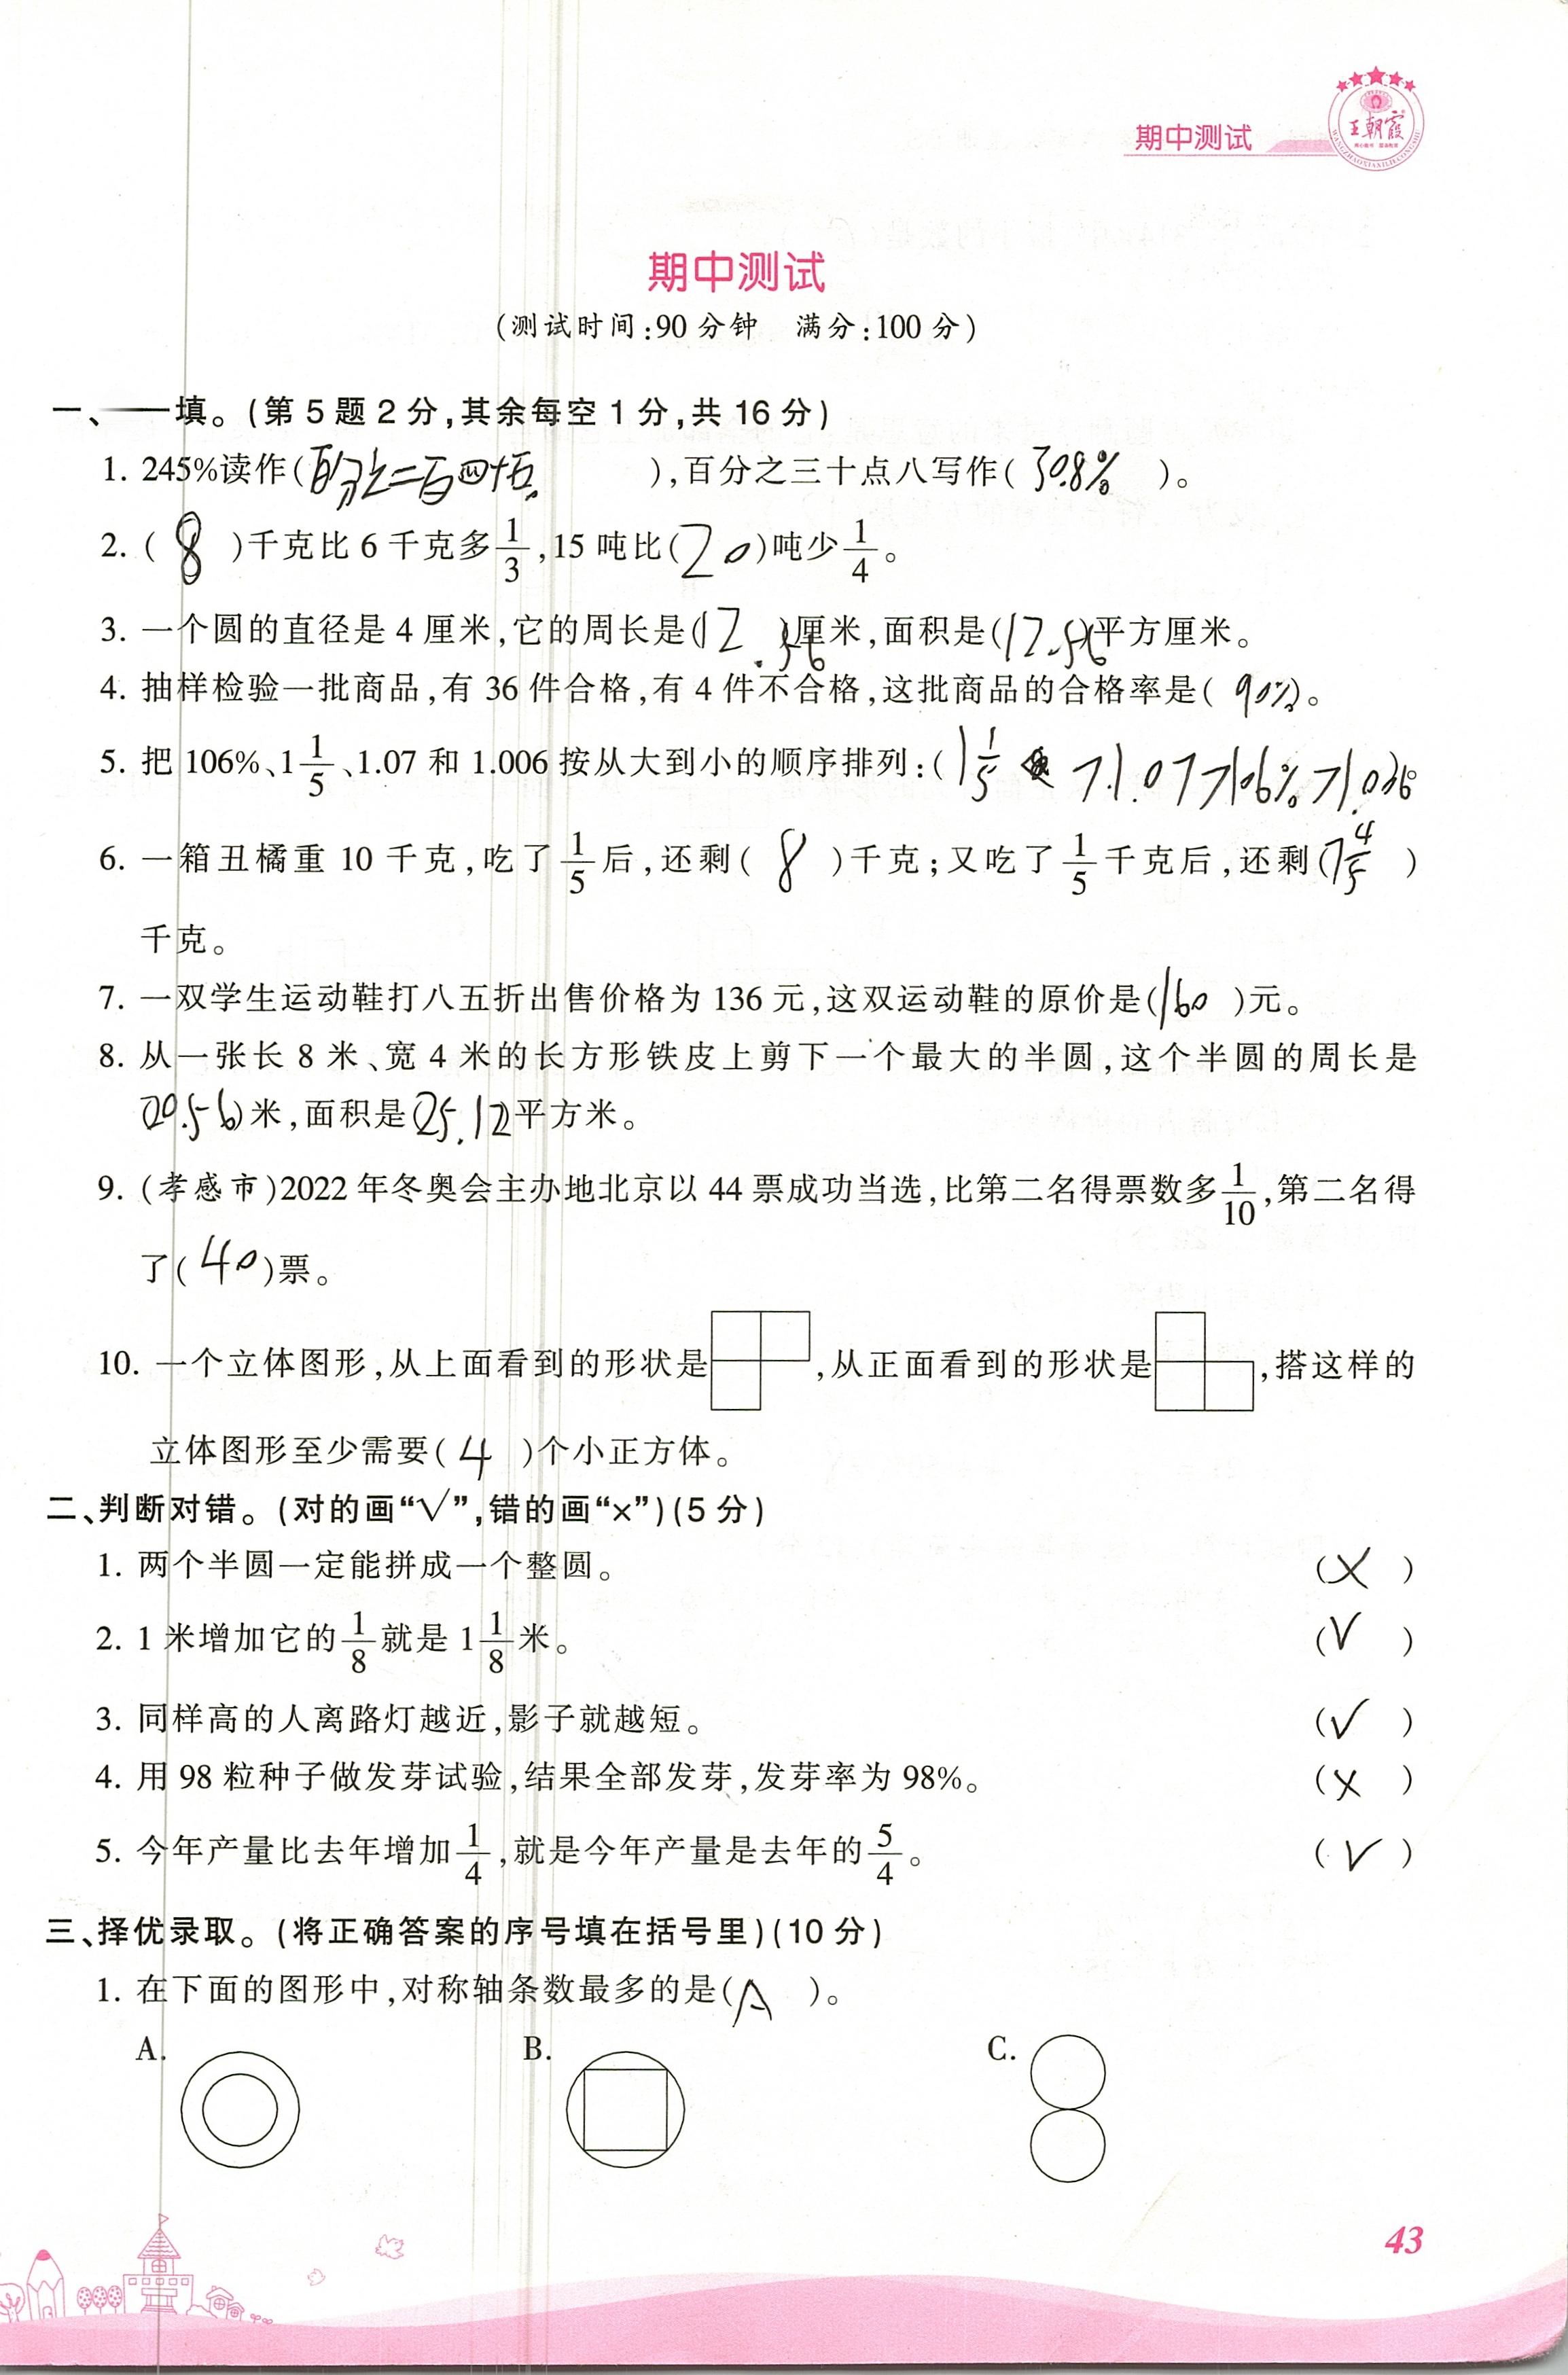 期中测试
王朝霞
期中测试
(测试时间:90分钟 满分:100分)
一、一一填。(第5题2分,其余每空1分,共16分)
1. 245%读作(百分之二百四十五),百分之三十点八写作(30.8%)。
2. (8)千克比6千克多1/3,15吨比(20)吨少1/4。
3. 一个圆的直径是4厘米,它的周长是(12.56)厘米,面积是(12.56)平方厘米。
4. 抽样检验一批商品,有36件合格,有4件不合格,这批商品的合格率是(90%)。
5. 把106%、1 1/5、1.07和1.006按从大到小的顺序排列:(1 1/5 >1.07>106%>
6. 一箱丑橘重10千克,吃了1/5后,还剩(8)千克;又吃了1/5千克后,还剩(7 4/5)
千克。
7. 一双学生运动鞋打八五折出售价格为136元,这双运动鞋的原价是(160)元。
8. 从一张长8米、宽4米的长方形铁皮上剪下一个最大的半圆,这个半圆的周长是
(20.56)米,面积是(25.12)平方米。
9. (孝感市)2022年冬奥会主办地北京以44票成功当选,比第二名得票数多1/10,第二名得
了(40)票。
10. 一个立体图形,从上面看到的形状是,从正面看到的形状是,搭这样的
立体图形至少需要(4)个小正方体。
二、判断对错。(对的画“√”,错的画“×”)(5分)
1. 两个半圆一定能拼成一个整圆。(×)
2. 1米增加它的1/8就是1 1/8米。(√)
3. 同样高的人离路灯越近,影子就越短。(√)
4. 用98粒种子做发芽试验,结果全部发芽,发芽率为98%。(×)
5. 今年产量比去年增加1/4,就是今年产量是去年的5/4。(√)
三、择优录取。(将正确答案的序号填在括号里)(10分)
1. 在下面的图形中,对称轴条数最多的是(A)。
A. B. C.
43